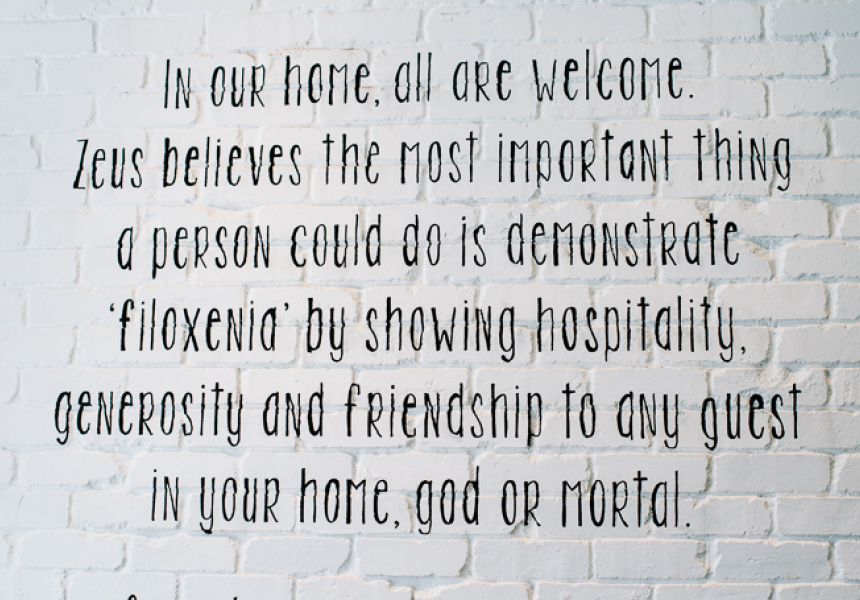 In our home, all are welcome.
Zeus believes the most important thing
a person could do is demonstrate
‘filoxenia’ by showing hospitality,
generosity and friendship to any guest
in your home, god or mortal.